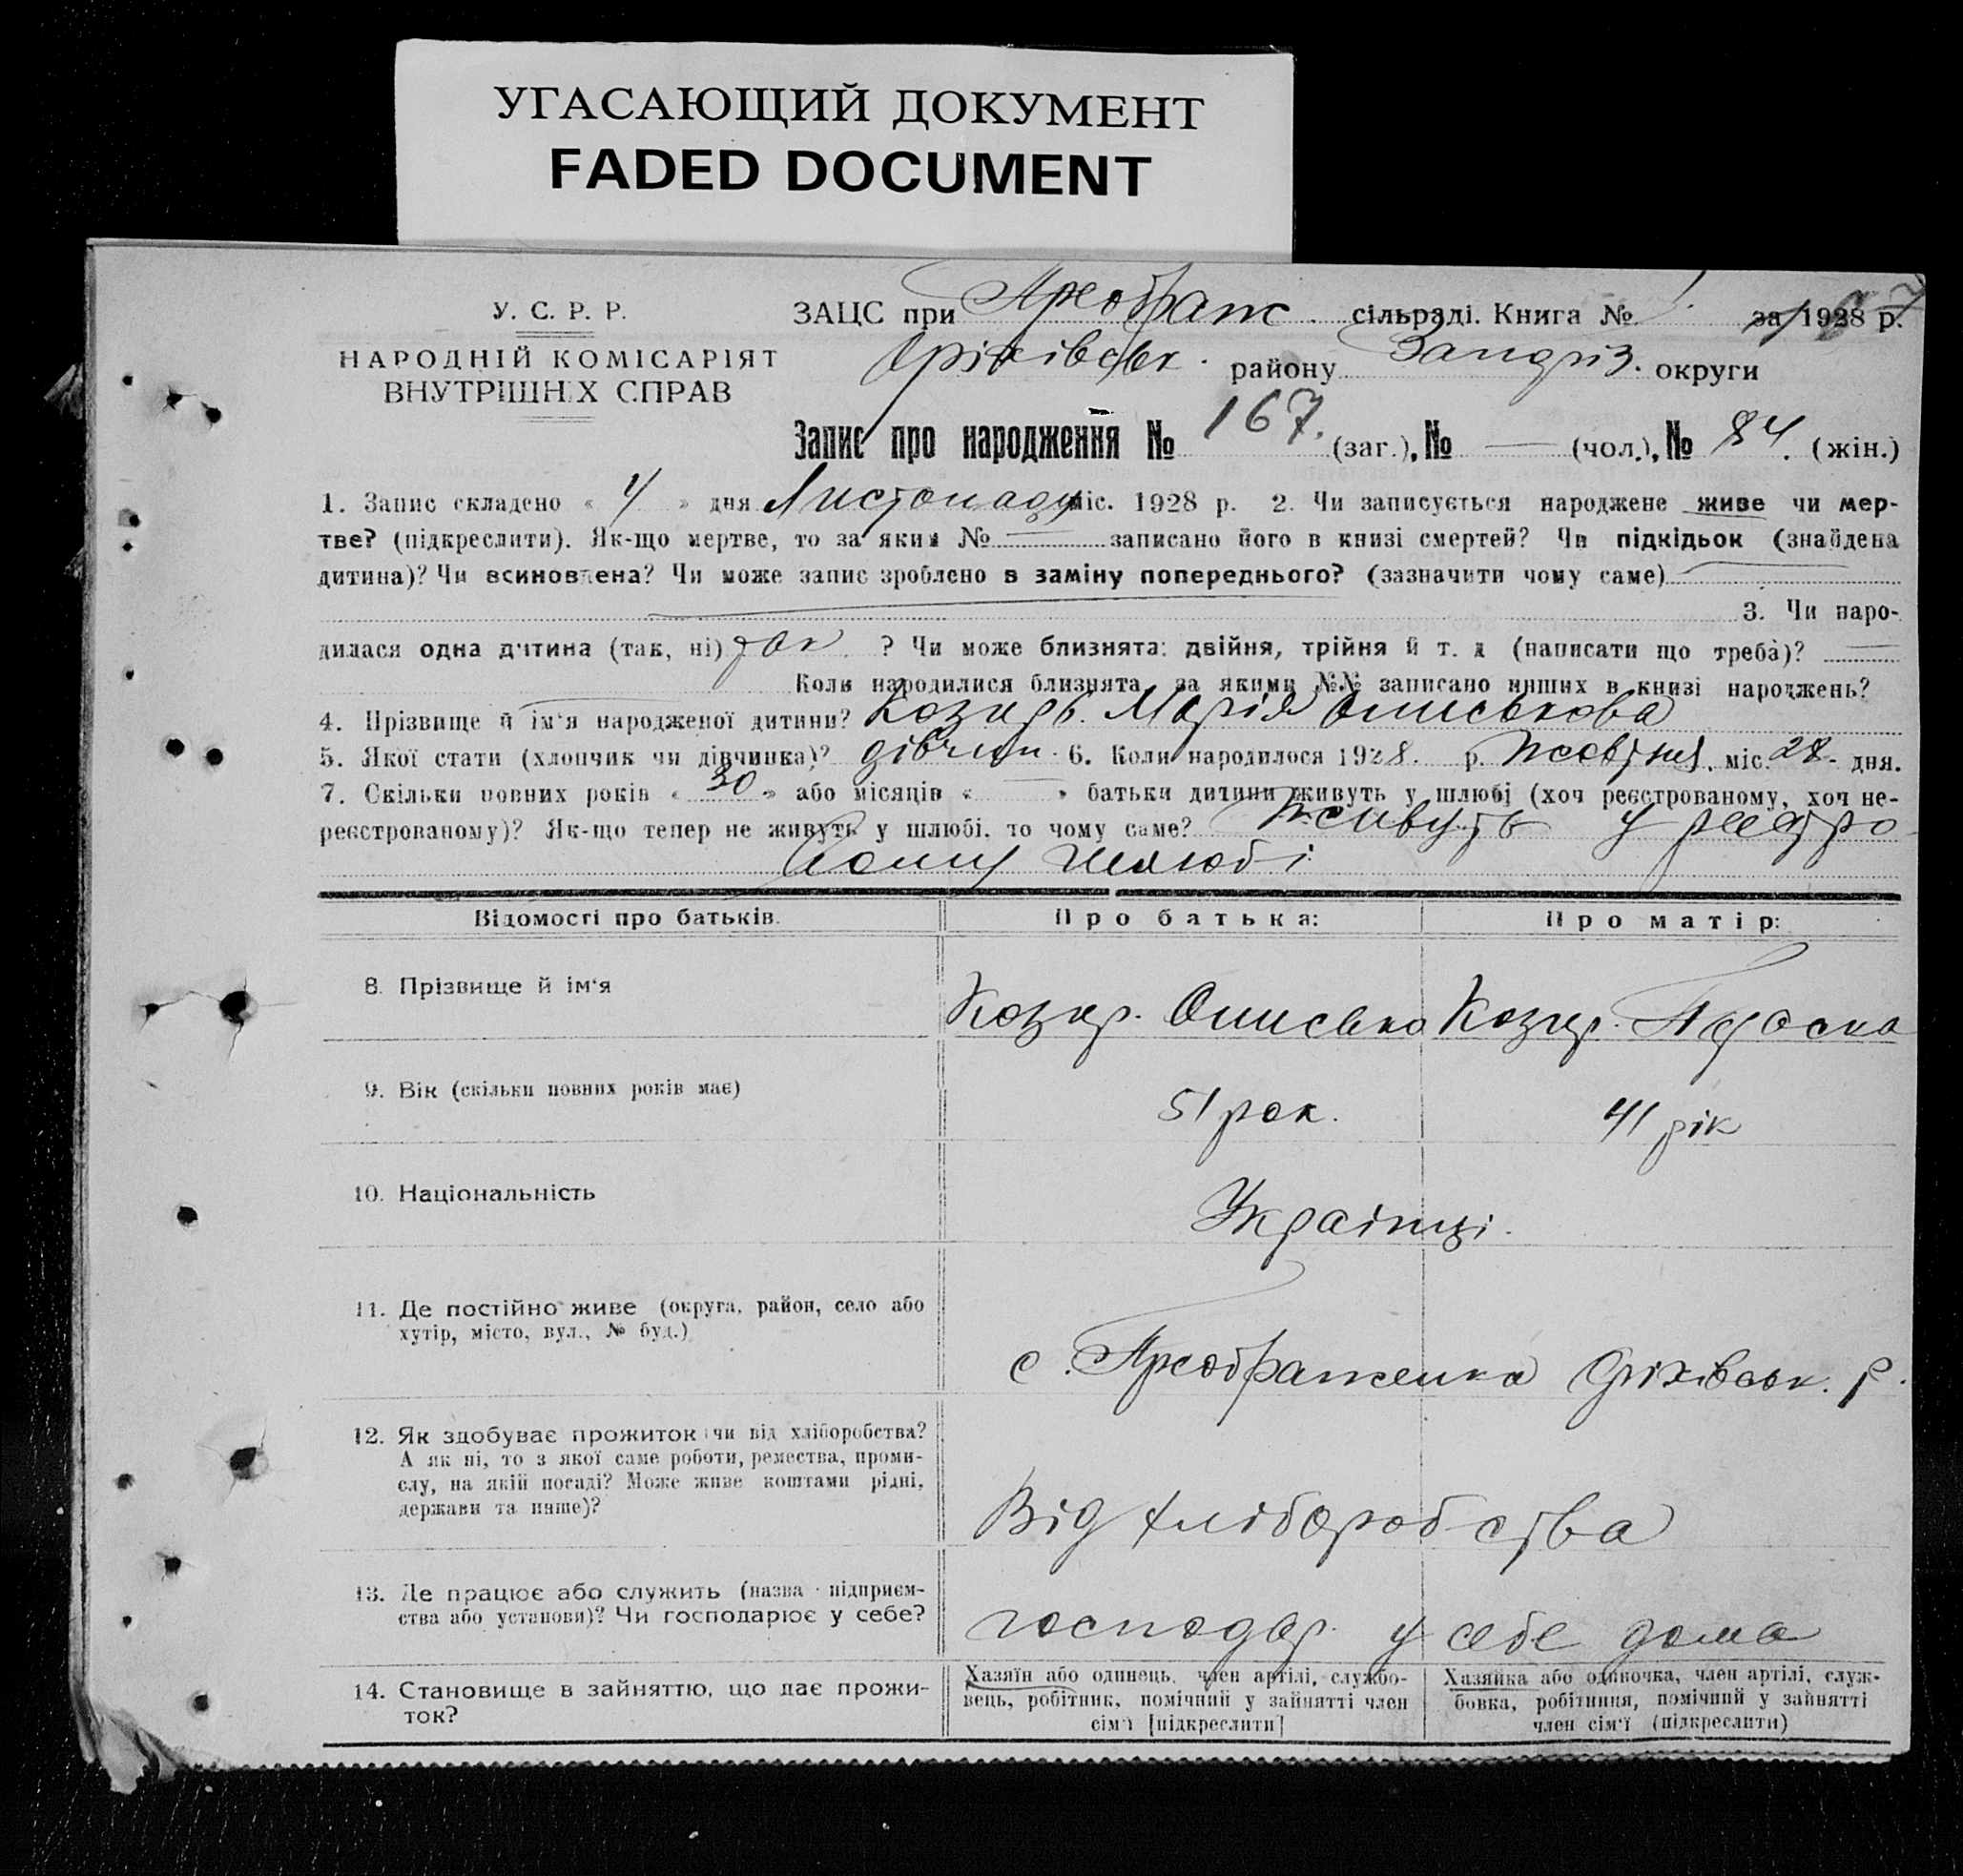 УГАСАЮЩИЙ ДОКУМЕНТ
FADED DOCUMENT
У. С. Р. Р.
НАРОДНІЙ КОМІСАРІЯТ
ВНУТРІШНІХ СПРАВ
ЗАЦС при Преображ. сільраді. Книга № 1. за 1928 р.
Оріхівськ. району Запоріз. округи
Запис про народження № 167. (заг.), № — (чол.), № 84. (жін.)
1. Запис складено « 4 » дня Листопаду міс. 1928 р. 2. Чи записується народжене живе чи мер-
тве? (підкреслити). Як-що мертве, то за яким № — записано його в книзі смертей? Чи підкідьок (знайдена
дитина)? Чи всиновлена? Чи може запис зроблено в заміну попереднього? (зазначити чому саме)
3. Чи наро-
дилася одна дитина (так, ні) так ? Чи може близнята: двійня, трійня й т. д (написати що треба)? —
Коли народилися близнята, за якими №№ записано инших в книзі народжень?
4. Прізвище й ім'я народженої дитини? Козирь. Марія Ониськова
5. Якої стати (хлопчик чи дівчинка)? дівчин. 6. Коли народилося 1928. р. Жовтня. міс. 28. дня.
7. Скільки повних років « 30 » або місяців « — » батьки дитини живуть у шлюбі (хоч реєстрованому, хоч не-
реєстрованому)? Як-що тепер не живуть у шлюбі. то чому саме? Живуть у реєстро
ваному шлюбі
Відомості про батьків. Про батька: Про матір:
8. Прізвище й ім'я Козир. Онисько Козир. Параска
9. Вік (скільки повних років має) 51 рок. 41 рік
10. Національність Українці.
11. Де постійно живе (округа, район, село або
хутір, місто, вул., № буд.)
с. Преображенка Оріхівськ. р.
12. Як здобуває прожиток чи від хліборобства?
А як ні, то з якої саме роботи, ремества, проми-
слу, на якій посаді? Може живе коштами рідні,
держави та инше)?
Від хліборобства
13. Де працює або служить (назва підприєм-
ства або установи)? Чи господарює у себе?
господар. у себе дома
14. Становище в зайняттю, що дає прожи-
ток?
Хазяїн або одинець, член артілі, службо-
вець, робітник, помічний у зайнятті член
сім'ї [підкреслити]
Хазяйка або одиночка, член артілі, служ-
бовка, робітниця, помічний у зайнятті
член сім'ї (підкреслити)